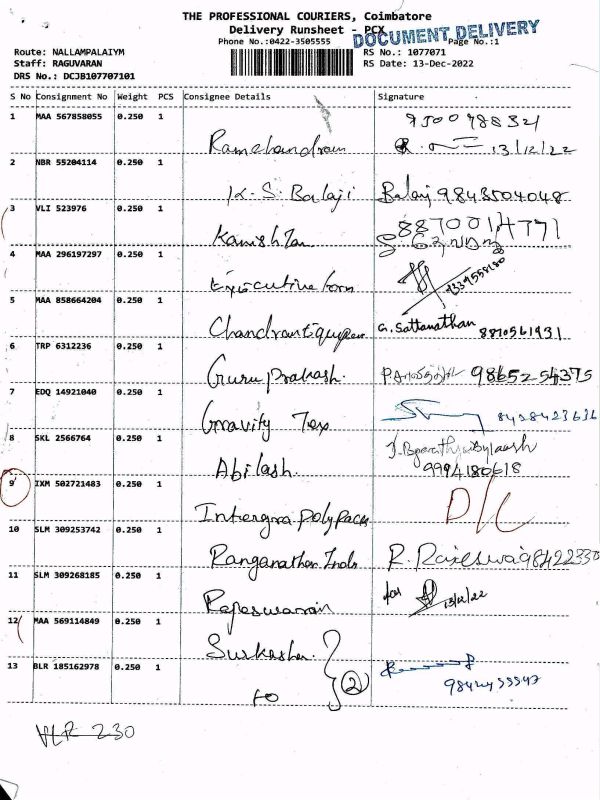 THE PROFESSIONAL COURIERS, Coimbatore
Delivery Runsheet - PCX
DOCUMENT DELIVERY
Phone No.:0422-3505555
Page No.:1
Route: NALLAMPALAIYM
RS No.: 1077071
Staff: RAGUVARAN
RS Date: 13-Dec-2022
DRS No.: DCJB107707101
S No Consignment No Weight PCS Consignee Details Signature
1 MAA 567858055 0.250 1 Ramchandram 13/12/22
2 NBR 55204114 0.250 1 K.S. Balaji Balaji 9843504048
3 VLI 523976 0.250 1 8870014771
4 MAA 296197297 0.250 1 Executive 9339558180
5 MAA 858664204 0.250 1 G. Sattanathan 8870561931
6 TRP 6312236 0.250 1 Guru Prakash. 9865254375
7 EDQ 14921040 0.250 1 Gravity Tex 8428423636
8 SKL 2566764 0.250 1 Abilash. 9994180618
9 IXM 502721483 0.250 1 Intergra polypack D/C
10 SLM 309253742 0.250 1 Ranganathan Inds R.
11 SLM 309268185 0.250 1 for 13/12/22
12 MAA 569114849 0.250 1
13 BLR 185162978 0.250 1 to 2
230